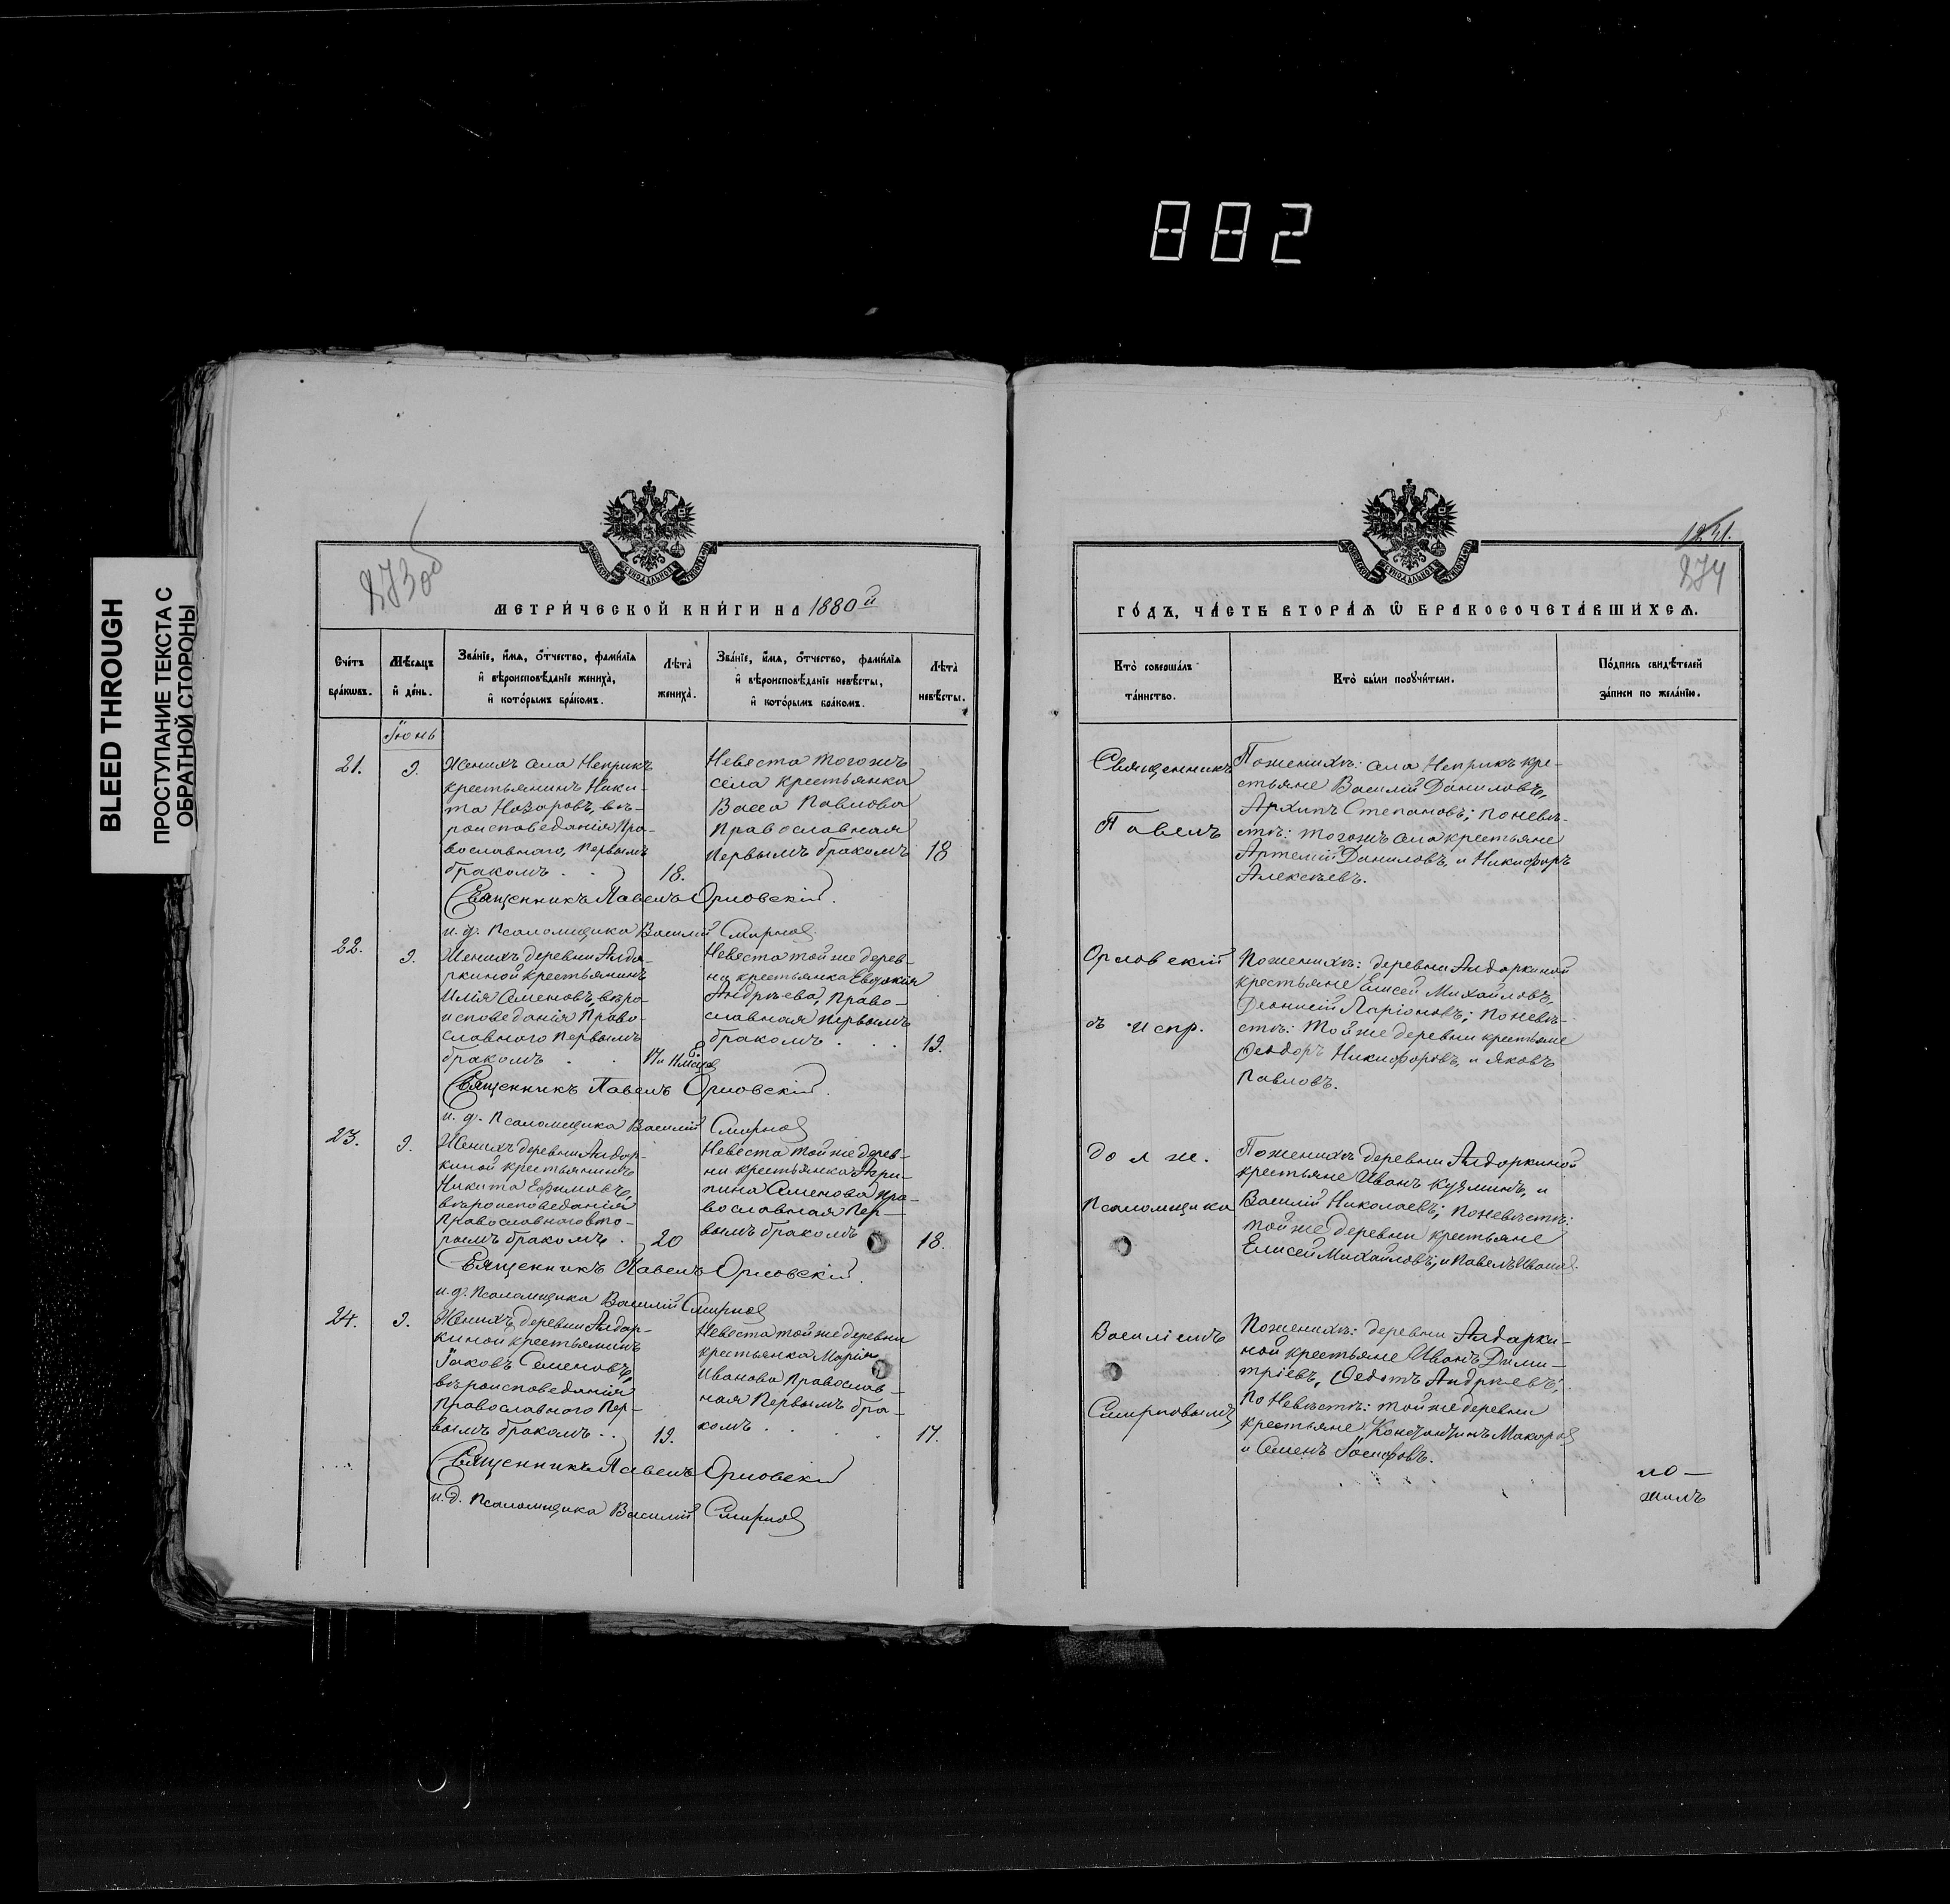 882
BLEED THROUGH
ПРОСТУПАНИЕ ТЕКСТА С
ОБРАТНОЙ СТОРОНЫ
273об
МЕТРИ́ЧЕСКОЙ КНИ́ГИ НА 1880й
Сче́тъ
бра́ковъ.
Мѣ́сяцъ
и҆ де́нь.
Зва́нїе, и҆́мя, ѻ҆́тчество, фами́лїя
и҆ вѣроисповѣ́данїе жениха̀,
и҆ кото́рымъ бра́комъ.
Лѣ́та
жениха̀.
Зва́нїе, и҆́мя, ѻ҆́тчество, фами́лїя
и҆ вѣроисповѣ́данїе невѣ́сты,
и҆ кото́рымъ бра́комъ.
Лѣ́та
невѣ́сты.
Іюнь
21.
9.
Женихъ села Неприкъ
крестьянинъ Ники-
та Назаровъ, вѣ-
роисповеданія Пра-
вославнаго, первымъ
бракомъ . .
18.
Невѣста тогожъ
села крестьянка
Васса Павлова
Православная
первымъ бракомъ
18
Священникъ Павелъ Орловскій.
и. д. Псаломщика Василій Смирновъ
22.
9.
Женихъ деревни Алда-
ркиной крестьянинъ
Илія Семеновъ, вѣро-
исповеданія Право-
славнаго первымъ
бракомъ . .
Невѣста той же дерев-
ни крестьянка Евдокія
Андрѣева, Право-
славная первымъ
бракомъ . . .
19.
Священникъ Павелъ Орловскій.
и. д. Псаломщика Василій Смирновъ
23.
9.
Женихъ деревни Алдар-
киной крестьянинъ
Никита Ефимовъ,
вѣроисповеданія
Православнаго вто-
рымъ бракомъ .
20
Невѣста той же дерев-
ни крестьянка Агри-
пина Семенова Пра-
вославная Пер-
вымъ бракомъ
18.
Священникъ Павелъ Орловскій.
и. д. Псаломщика Василій Смирновъ
24.
9.
Женихъ деревни Алдар-
киной крестьянинъ
Іаковъ Семеновъ,
вѣроисповеданія
Православнаго Пер-
вымъ бракомъ . .
19.
Невѣста той же деревни
крестьянка Марія
Иванова Православ-
ная Первымъ бра-
комъ . . . .
17.
Священникъ Павелъ Орловскій
и. д. Псаломщика Василій Смирновъ
274
ГО́ДЪ, ЧА́СТЬ ВТОРА́Я Ѽ БРАКОСОЧЕТА́ВШИХСЯ.
Кто̀ соверша́лъ
та́инство.
Кто̀ бы́ли порꙋчи́тели.
По́дпись свидѣ́телей
за́писи по жела́нїю.
Священникъ
Павелъ
Орловскій
съ испр.
долж.
Псаломщика
Василіемъ
Смирновымъ
По женихѣ: села Неприкъ кре-
стьяне Василій Даниловъ,
Архипъ Степановъ; по невѣ-
стѣ: тогожъ села крестьяне
Артемій Даниловъ, и Никифоръ
Алексѣевъ.
По женихѣ: деревни Алдаркиной
крестьяне Елисей Михайловъ,
Діонисій Ларіоновъ; по невѣ-
стѣ: той же деревни крестьяне
Ѳеодоръ Никифоровъ, и Яковъ
Павловъ.
По женихѣ деревни Алдаркиной
крестьяне Иванъ Кузминъ, и
Василій Николаевъ; по невѣстѣ:
той же деревни крестьяне
Елисей Михайловъ, и Павелъ Ивановъ.
По женихѣ: деревни Алдарки-
ной крестьяне Иванъ Дими-
тріевъ, Ѳедотъ Андрѣевъ;
по Невѣстѣ: той же деревни
крестьяне Константинъ Макаровъ
и Семенъ Іосифовъ.